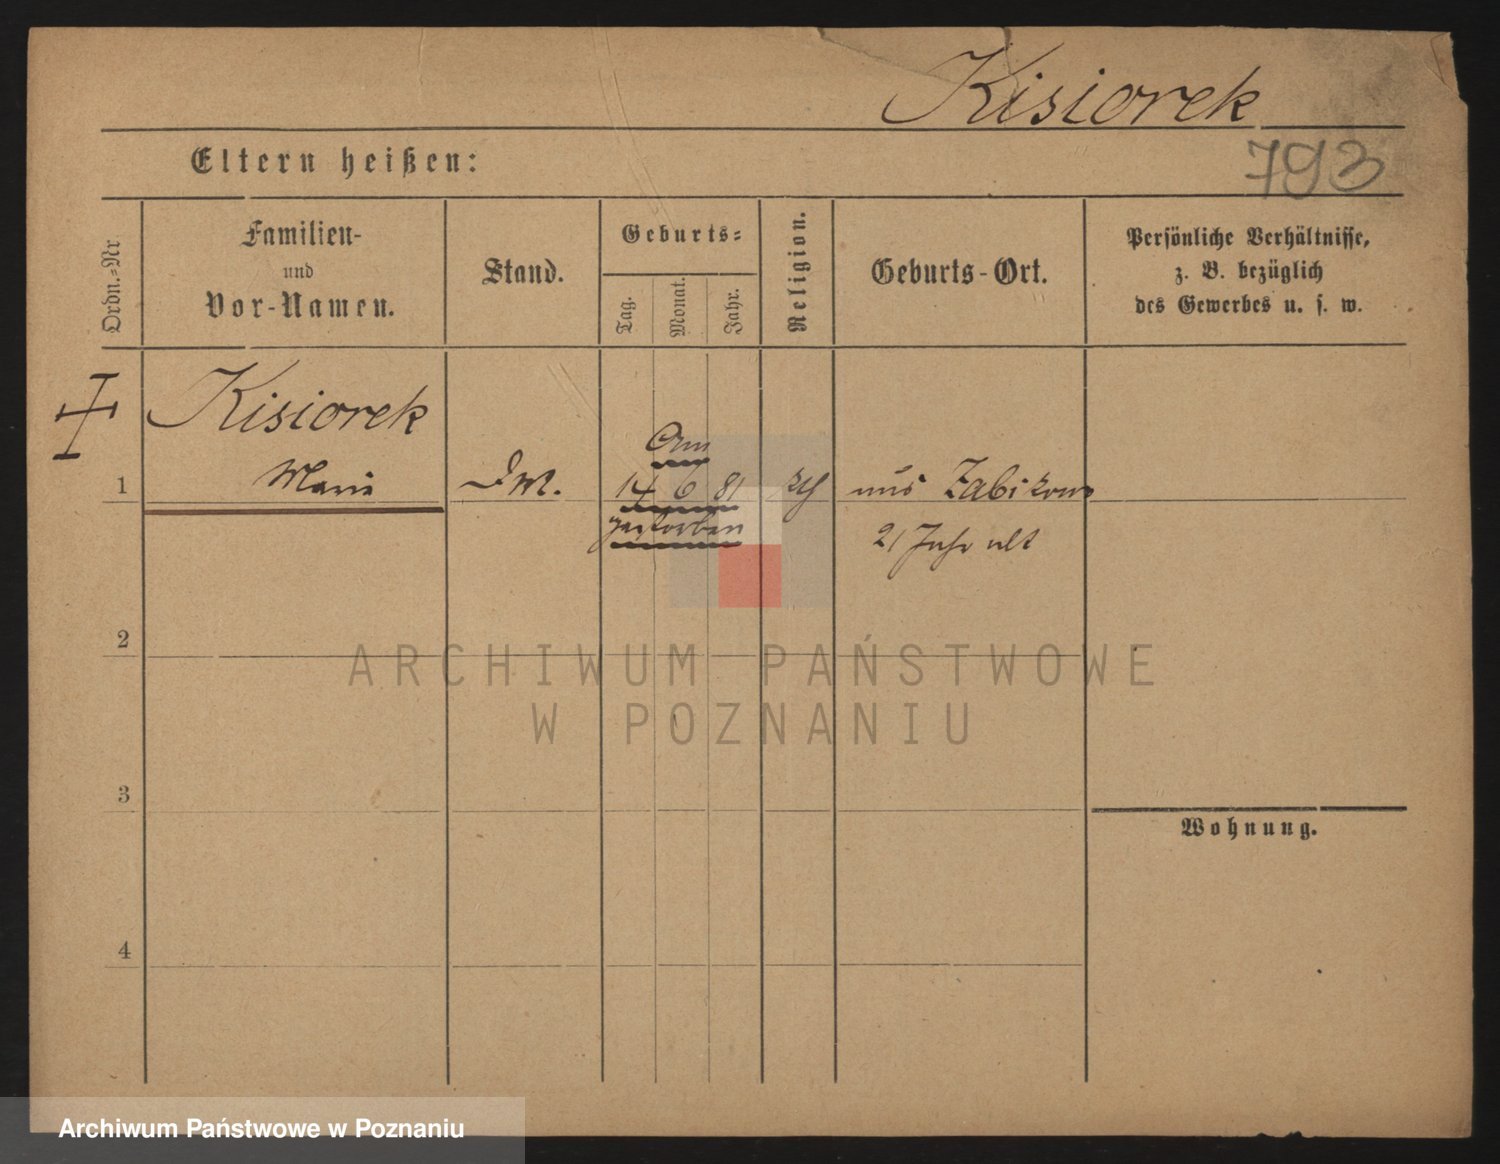 Kisiorek
Eltern heißen:
793
Ordn.=Nr
Familien-
und
Vor-Namen.
Stand.
Geburts=
Tag.
Monat.
Jahr.
Religion.
Geburts-Ort.
Persönliche Verhältnisse,
z. B. bezüglich
des Gewerbes u. s. w.
Kisiorek
Am
1 Marie
14 6 81
aus Zabikowo
gestorben
21 Jahr alt
2
ARCHIWUM PAŃSTWOWE
W POZNANIU
3
Wohnung.
4
Archiwum Państwowe w Poznaniu